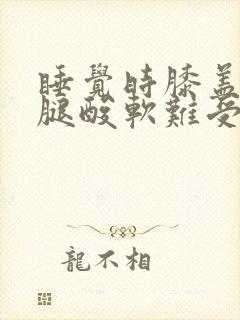 睡覺時膝蓋
腿酸軟難受
龍不相